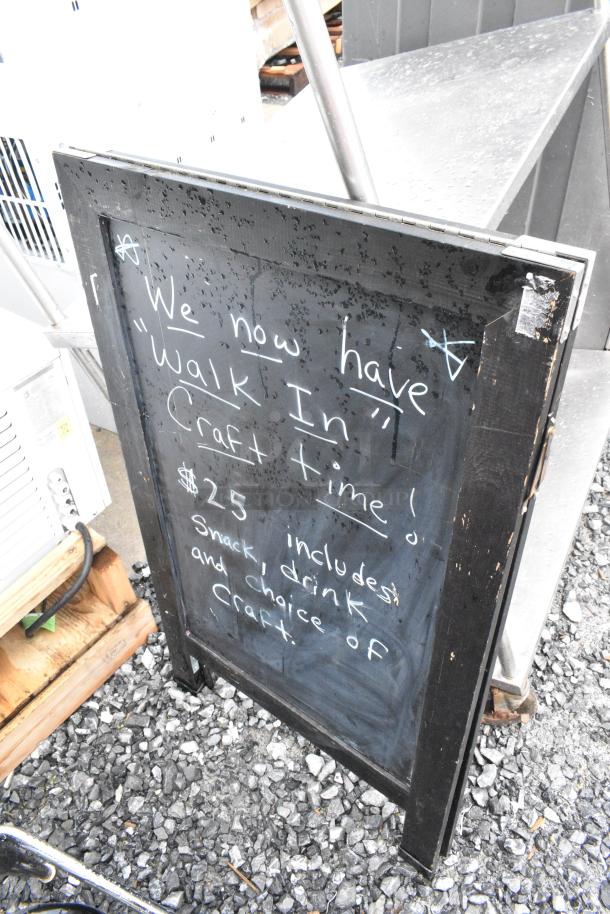 We now have
"Walk In"
Craft time!
$25 includes
Snack, drink
and choice of
craft.